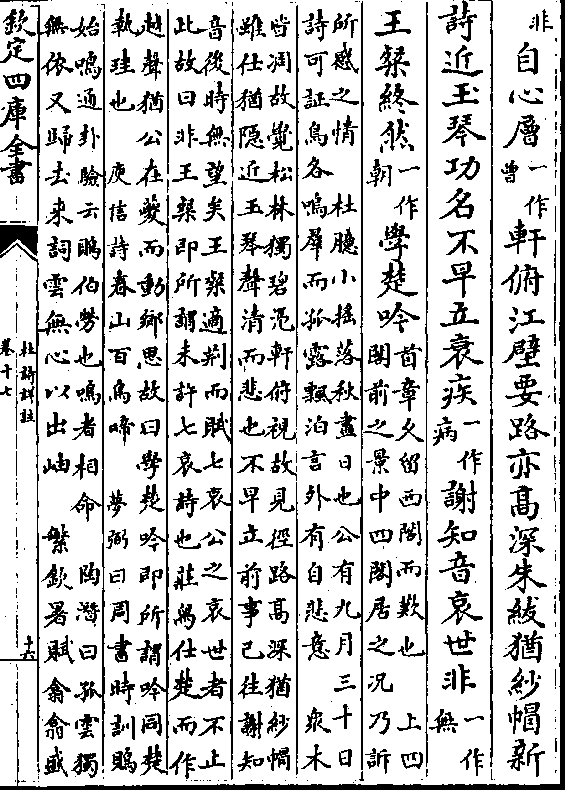 非自心層一作曾軒俯江壁要路亦高深朱紱猶紗帽新
詩近玉琴功名不早立衰疾一作病謝知音哀世非一作無
王粲終然一作朝學楚吟
首章久留西閣而歎也　上四
閣前之景中四閣居之況乃訴
所感之情　杜臆小搖落秋盡日也公有九月三十日
詩可証鳥各鳴羣而孤露飄泊言外有自悲意　衆木
皆凋故覺松林獨碧憑軒俯視故見徑路高深猶紗帽
雖仕猶隱近玉琴聲清而悲也不早立前事已往謝知
音後時無望矣王粲適荆而賦七哀公之哀世者不止
此故曰非王粲即所謂未許七哀詩也莊舄仕楚而作
越聲猶公在夔而動鄉思故曰學楚吟即所謂吟同楚
執珪也　庾信詩春山百鳥啼　夢弼曰周書時訓鵙
始鳴通卦驗云鵙伯勞也鳴者相命　陶潛曰孤雲獨
無依又歸去來詞雲無心以出岫　繁欽暑賦翕翕盛
欽定四庫全書
杜詩詳註
卷十七
十六